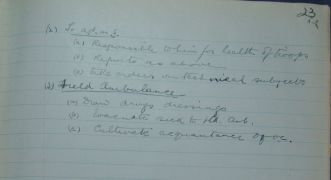 23
(2) To admin.
(a) Responsible to him for health of troops
(b) Reports as above
(c) take orders on technical subjects
(3) Field Ambulance
(a) Draw drugs dressings
(b) Evacuate sick to Fd. Amb.
(c) Cultivate acquaintance of oc.